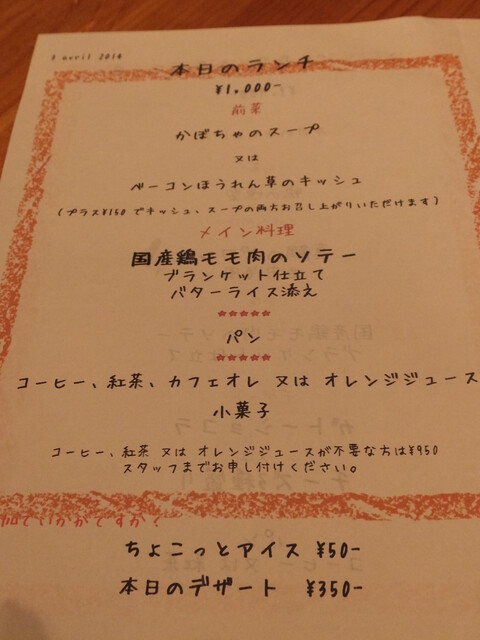 3 avril 2014
本日のランチ
¥1,000-
前菜
かぼちゃのスープ
又は
ベーコンほうれん草のキッシュ
(プラス¥150でキッシュ、スープの両方お召し上がりいただけます)
メイン料理
国産鶏モモ肉のソテー
ブランケット仕立て
バターライス添え
*****
パン
*****
コーヒー、紅茶、カフェオレ 又は オレンジジュース
小菓子
コーヒー、紅茶 又は オレンジジュースが不要な方は¥950
スタッフまでお申し付けください。
加でいかがですか?
ちょこっとアイス ¥50-
本日のデザート ¥350-